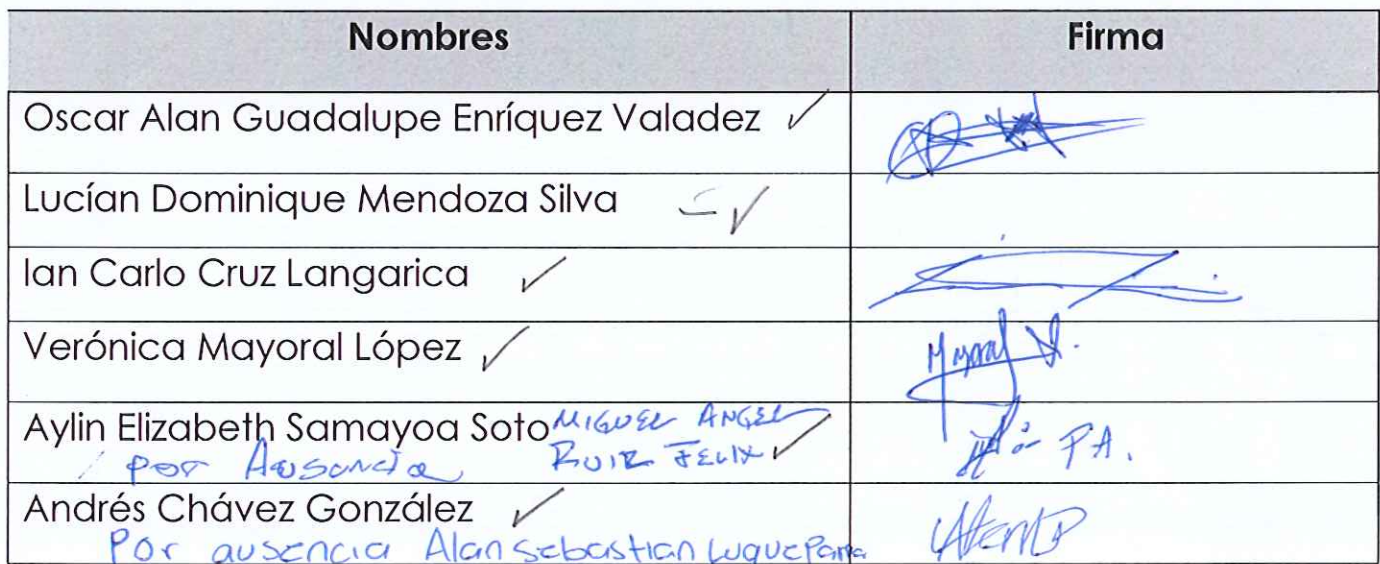 Nombres Firma
Oscar Alan Guadalupe Enríquez Valadez
Lucían Dominique Mendoza Silva
Ian Carlo Cruz Langarica
Verónica Mayoral López Mayoral
Aylin Elizabeth Samayoa Soto MIGUEL ANGEL
por Ausencia RUIZ FELIX P.A.
Andrés Chávez González
Por ausencia Alan sebastian Luque Parra